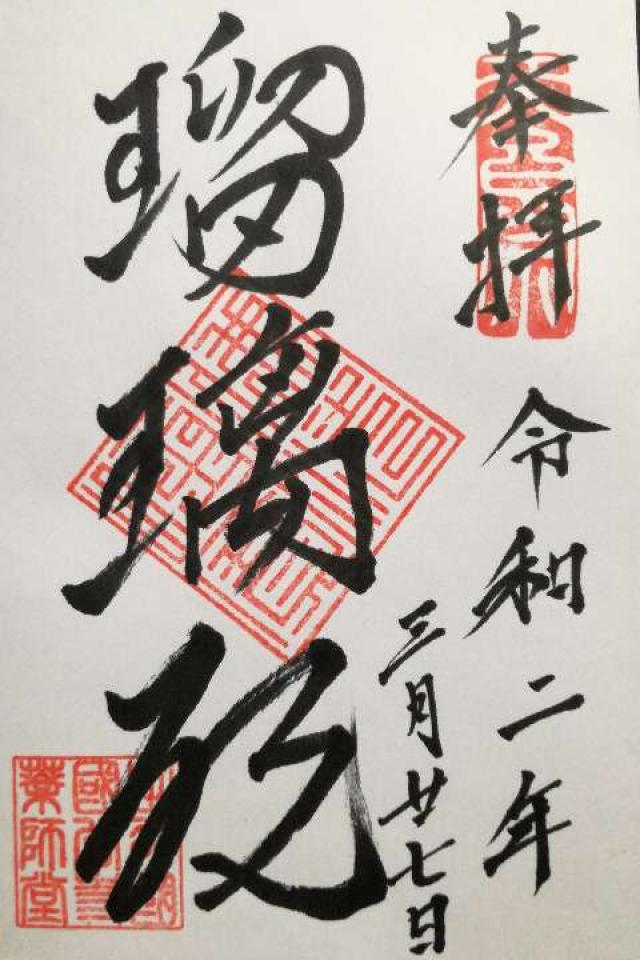 奉拝
令和二年
三月廿七日
瑠璃殿
國分寺
薬師堂